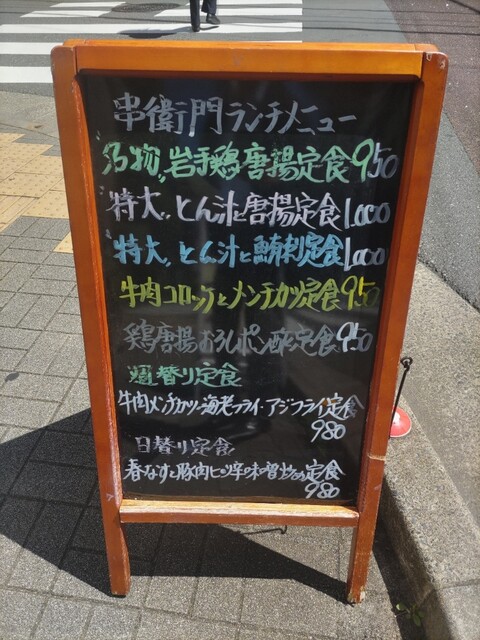 串衛門ランチメニュー
"名物"岩手鶏唐揚定食950
"特大"とん汁と唐揚定食1,000
"特大"とん汁と鮪刺定食1,000
牛肉コロッケとメンチカツ定食950
鶏唐揚おろしポン酢定食950
週替り定食
牛肉メンチカツ・海老フライ・アジフライ定食
980
日替り定食
春なすと豚肉ピリ辛味噌炒め定食
980